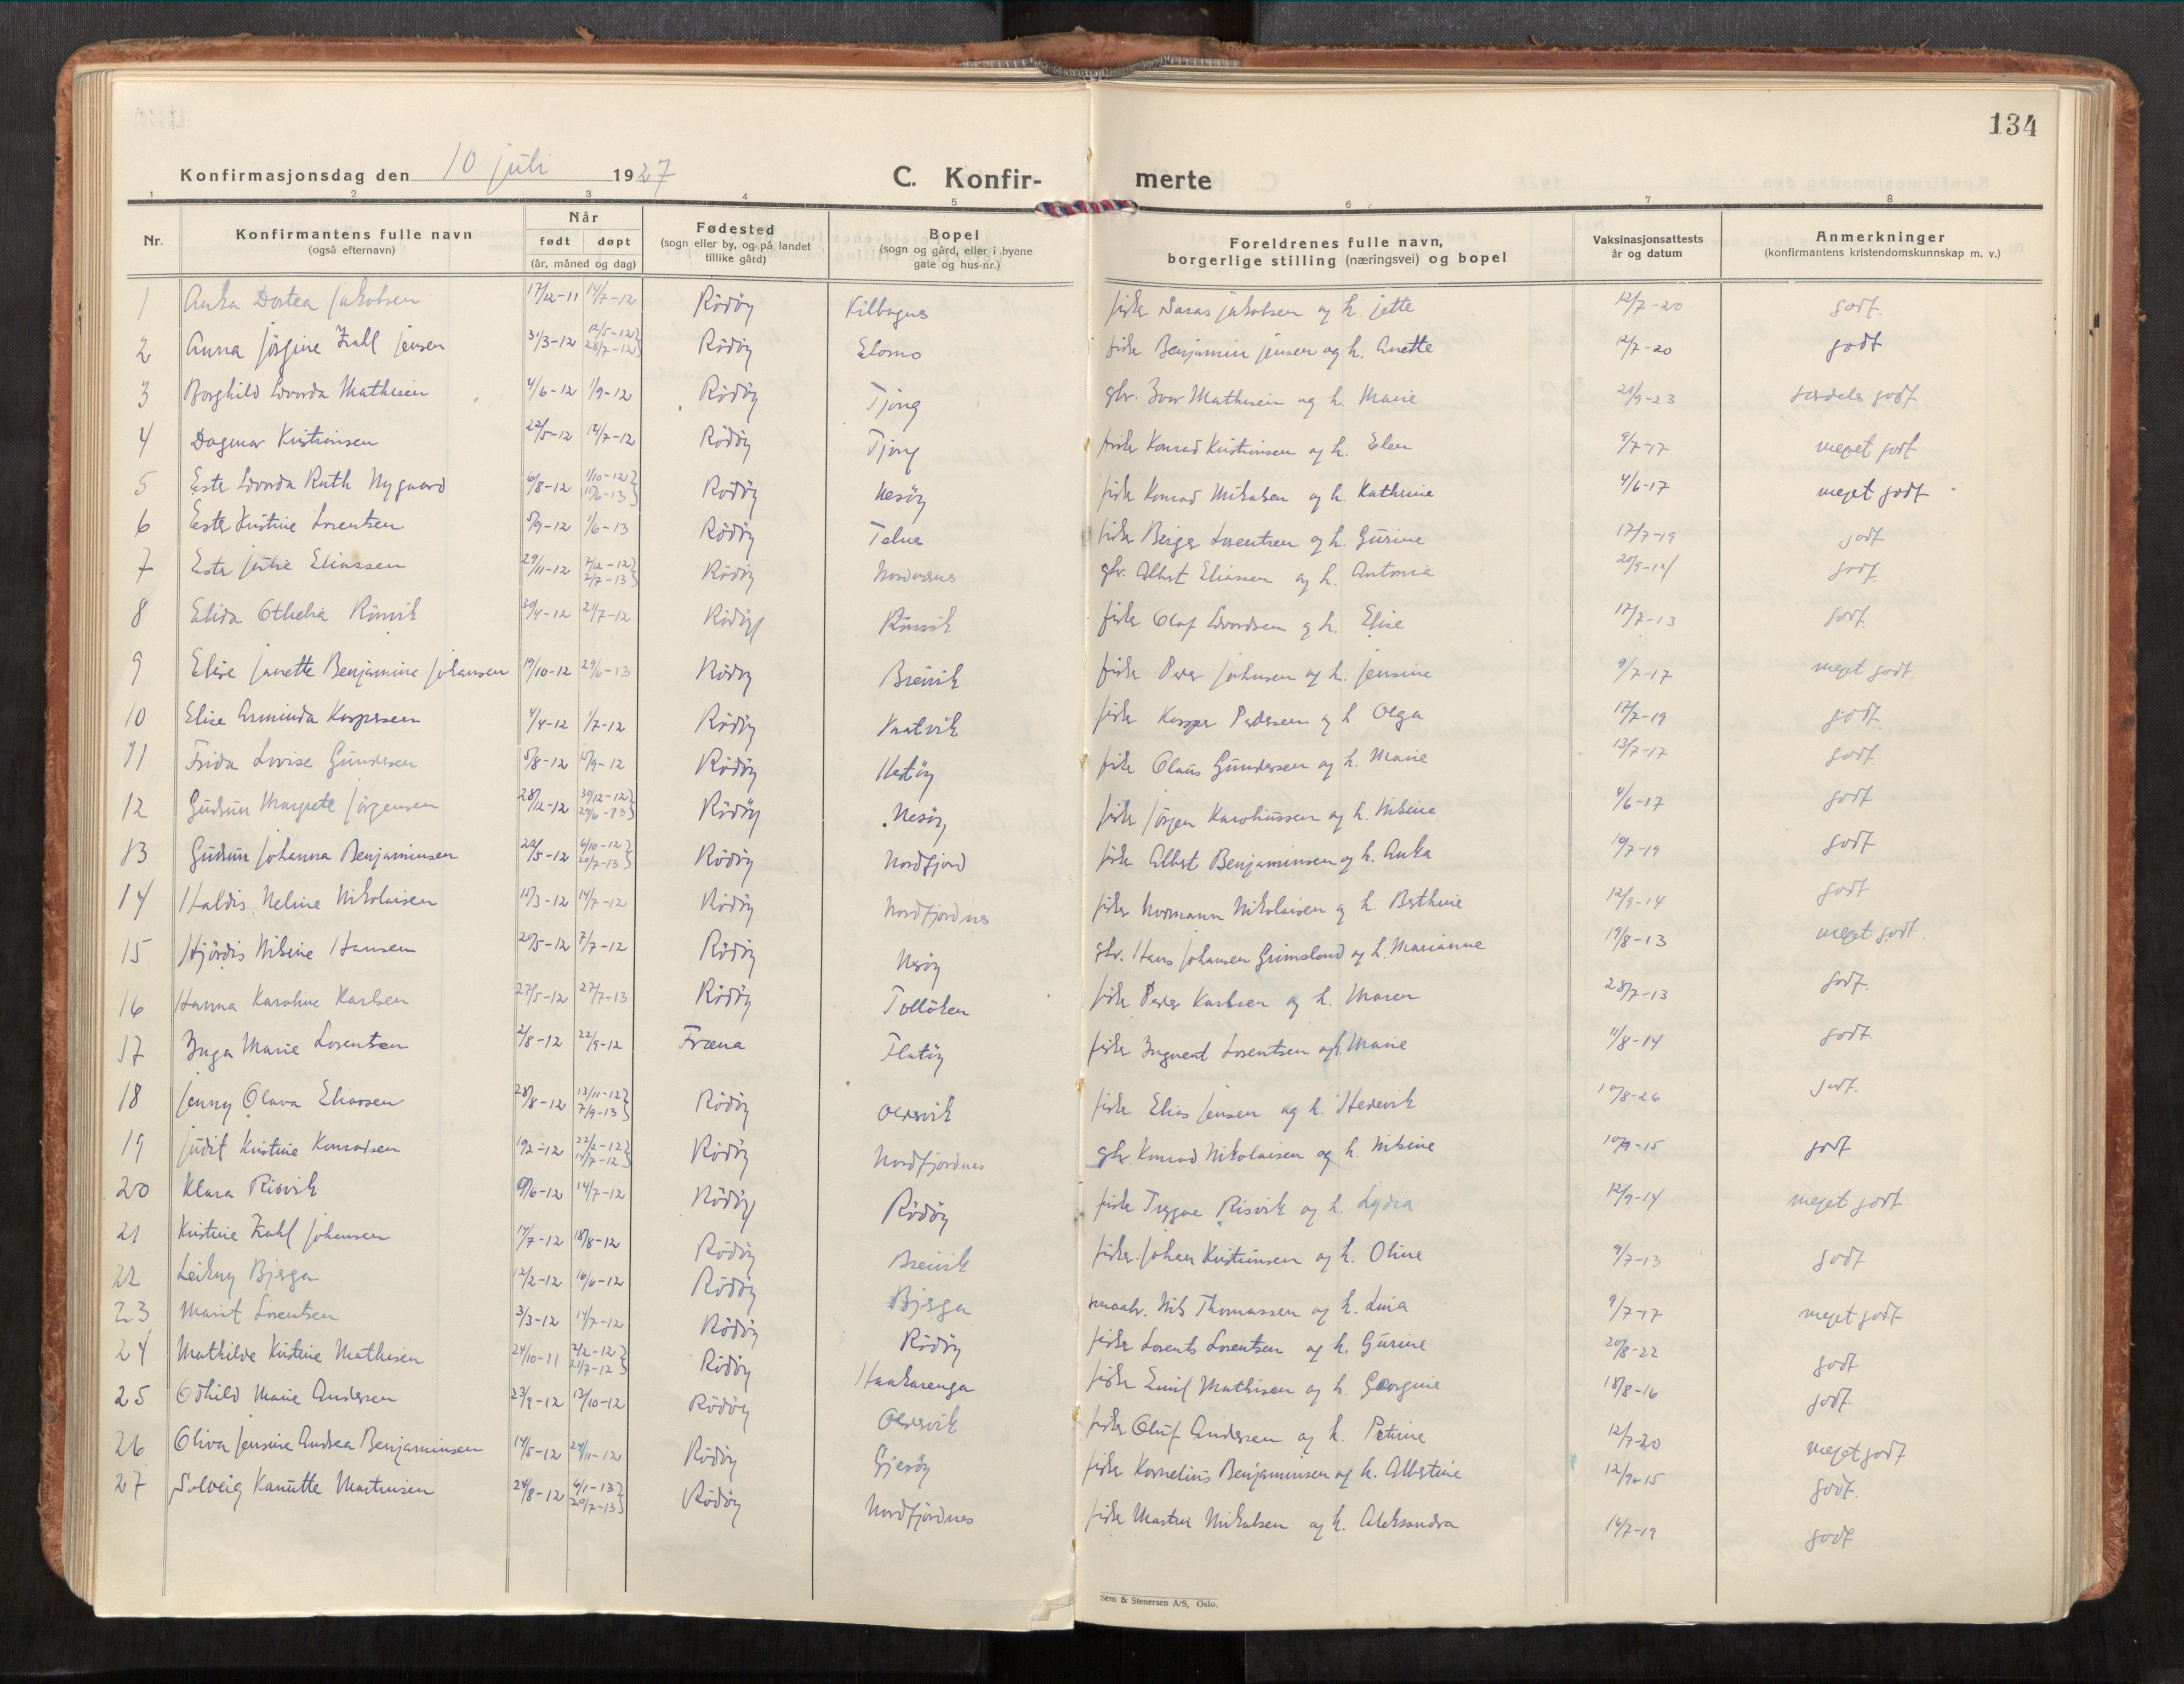 134
Konfirmasjonsdag den 10 juli 1927
C. Konfir- merte
1 2 3 4 5 6 7 8
Nr.
Konfirmantens fulle navn
(også efternavn)
Når
født døpt
(år, måned og dag)
Fødested
(sogn eller by, og på landet
tillike gård)
Bopel
(sogn og gård, eller i byene
gate og hus-nr.)
Foreldrenes fulle navn,
borgerlige stilling (næringsvei) og bopel
Vaksinasjonsattests
år og datum
Anmerkninger
(konfirmantens kristendomskunnskap m. v.)
1 Anka Dortea Jakobsen 17/12-11 14/7-12 Rödöy Kilbognes fisker Jakobsen og h. Jette 12/7-20 godt.
2 Anna Jörgine Zahl Jensen 31/3-12 12/5-12 28/7-12 Rödöy Slomo fisker Benjamin Jensen og h. Anette 12/7-20 godt
3 Borghild Edvarda Mathisen 4/6-12 1/9-12 Rödöy Tjong gbr. Ivar Mathisen og h. Marie 21/9-23 særdeles godt
4 Dagmar Kristiansen 22/5-12 14/7-12 Rödöy Tjong fisker Konrad Kristiansen og h. Elen 9/7-17 meget godt
5 Ester Edvarda Ruth Nygaard 6/8-12 1/10-12 15/6-13 Rödöy Nesöy fisker Konrad Mikalsen og h. Kathrine 4/6-17 meget godt
6 Ester Kristine Lorentsen 5/9-12 1/6-13 Rödöy Telnes fisker Berger Lorentsen og h. Gurine 17/7-19 godt
7 Ester Jutie Eliassen 29/11-12 7/12-12 2/7-13 Rödöy Nordnes gbr. Albert Eliassen og h. Antonia 20/9-14 godt
8 Elida Othelia Rönvik 30/4-12 21/7-12 Rödöy Rönvik fisker Olaf Edvardsen og h. Elise 17/7-13 godt.
9 Elise Janette Benjamine Johansen 19/10-12 29/6-13 Rödöy Breivik fisker Peder Johnsen og h. Jensine 9/7-17 meget godt.
10 Elise Arminda Kaspersen 4/4-12 1/7-12 Rödöy Kaatvik fisker Kasper Pedersen og h. Olga 17/7-19 godt
11 Frida Lovise Gundersen 5/8-12 15/9-12 Rödöy Hestöy fisker Olaus Gundersen og h. Marie 13/7-17 godt
12 Gudrun Margrete Jörgensen 28/12-12 30/12-12 24/6-13 Rödöy Nesöy fisker Jörgen Karoliussen og h. Nilsine 4/6-17 godt
13 Gudrun Johanna Benjaminsen 22/5-12 6/10-12 20/7-13 Rödöy Nordfjord fisker Albert Benjaminsen og h. Anka 10/7-19 godt
14 Haldis Neline Nikolaisen 15/3-12 14/7-12 Rödöy Nordfjordnes fisker Normann Nikolaisen og h. Berthine 12/9-14 godt
15 Hjördis Nilsine Hansen 20/5-12 7/7-12 Rödöy Nesöy gbr. Hans Johansen Grimsland og h. Marianne 19/8-13 meget godt.
16 Hanna Karoline Karlsen 27/5-12 27/7-13 Rödöy Tollöken fisker Peder Karlsen og h. Maren 28/7-13 godt.
17 Inga Marie Lorentsen 2/8-12 22/9-12 Fræna Flatöy fisker Ingvart Lorentsen og h. Marie 11/8-14 godt.
18 Jenny Olava Eliassen 28/8-12 13/11-12 7/9-13 Rödöy Oldervik fisker Elias Jensen og h. Hedevik 10/8-26 godt.
19 Judit Kristine Konradsen 19/2-12 22/2-12 14/7-12 Rödöy Nordfjordnes gbr. Konrad Nikolaisen og h. Nilsine 10/9-15 godt
20 Klara Risvik 9/6-12 14/7-12 Rödöy Rödöy fisker Trygve Risvik og h. Lydia 12/9-14 meget godt
21 Kristine Zahl Johansen 14/7-12 18/8-12 Rödöy Breivik fisker Johan Kristiansen og h. Oline 9/7-13 godt
22 Leikny Bjerga 12/2-12 16/6-12 Rödöy Bjerga smaabr. Nils Thomassen og h. Lina 9/7-17 meget godt
23 Marit Lorentsen 3/3-12 14/7-12 Rödöy Rödöy fisker Lorents Lorentsen og h. Gurine 20/8-22 godt
24 Mathilde Kristine Mathisen 24/10-11 2/2-12 21/7-12 Rödöy Haakarenga fisker Emil Mathisen og h. Georgine 18/8-16 godt
25 Odhild Marie Andersen 23/9-12 13/10-12 Rödöy Oldervik fisker Oluf Andersen og h. Petrine 12/7-20 meget godt
26 Oliva Jensine Andrea Benjaminsen 14/5-12 24/11-12 Rödöy Gjesöy fisker Kornelius Benjaminsen og h. Albertine 12/9-15 godt.
27 Solveig Kanutte Martinsen 24/8-12 6/1-13 20/7-13 Rödöy Nordfjordnes fisker Martin Mikalsen og h. Aleksandra 14/7-19 godt
Sem & Stenersen A/S, Oslo.